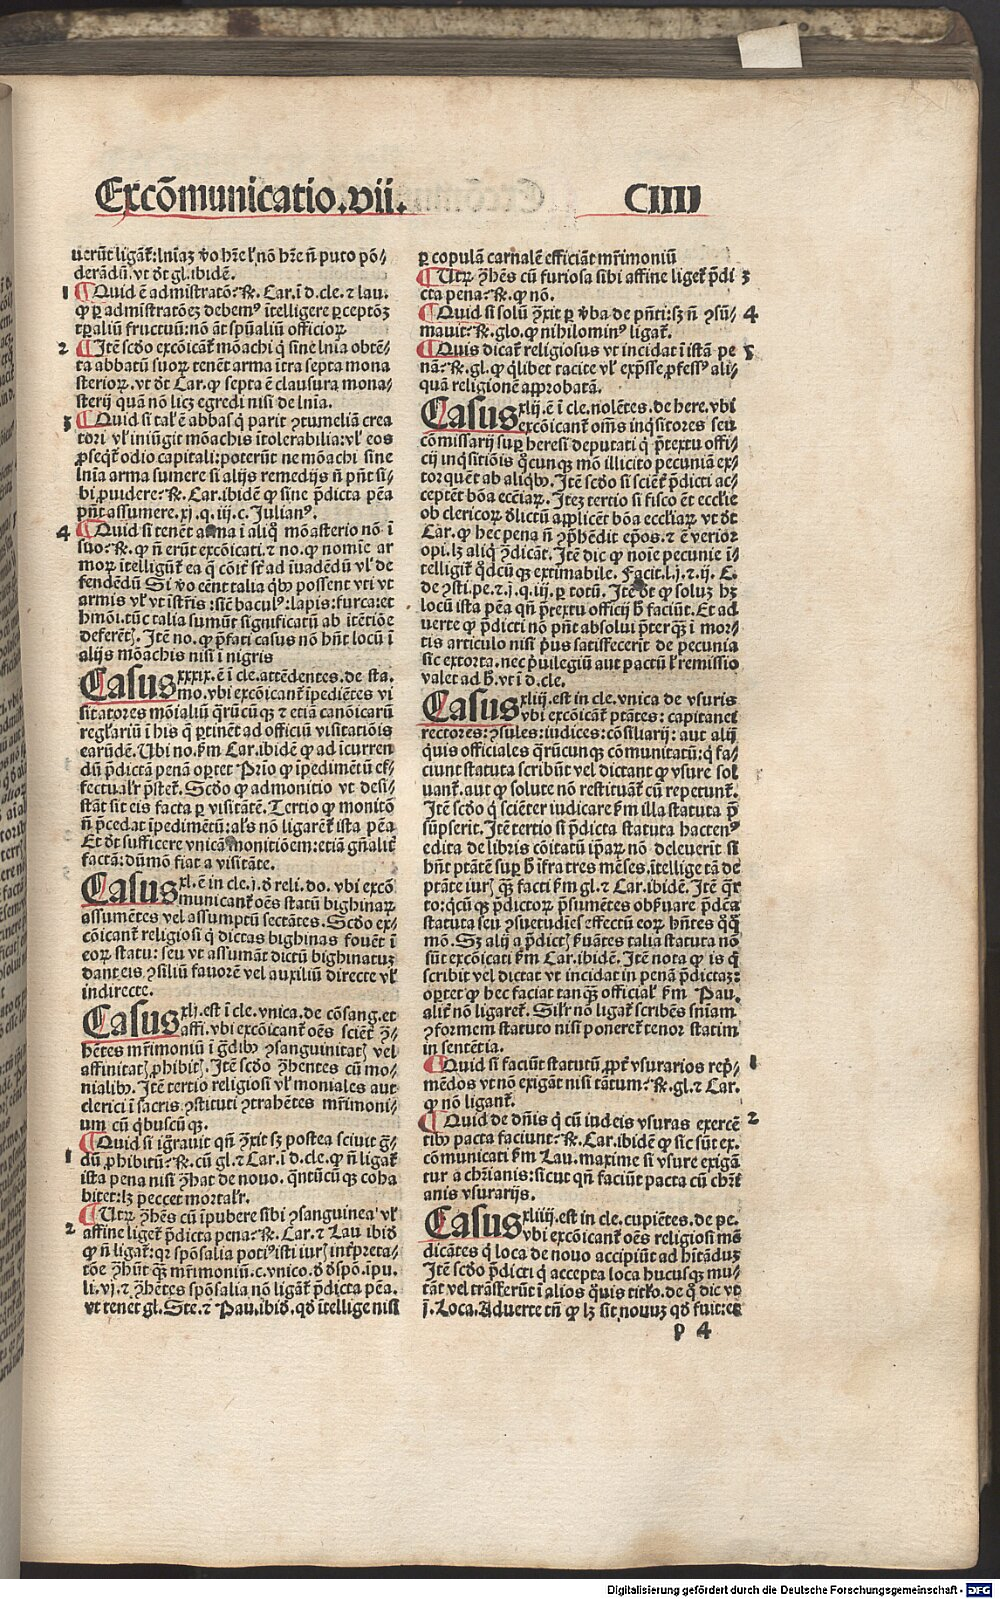 Excõmunicatio.vii. CIIII
uerũt ligãt̃: lniaʒ ṽo hr̃e l̕ nõ hr̃e ñ puto põ⸗
derãdũ. vt d̃t gl. ibidẽ.
1 ¶ Quid ẽ admĩstratõe? R̃. Car. ĩ d. cle. ⁊ lau.
ꝙ ꝑ admĩstratõeʒ debemꝰ ĩtelligere ꝑceptõʒ
tꝑaliũ fructuũ: nõ ãt spũaliũ officioꝝ
2 ¶ Itẽ scd̃o excõicãt̃ mõachi q̃ sine lnia obtẽ⸗
ta abbatũ suoꝝ tenẽt arma ĩtra septa mona
sterioꝝ. vt d̃t Car. ꝙ septa ẽ clausura mona⸗
sterij quã nõ licʒ egredi nisi de lnĩa.
3 ¶ Quid si tal̕ ẽ abbas q̃ parit ꝯtumeliã crea
tori vl̕ iniũgit mõachis ĩtolerabilia: vl̕ eos
ꝓseqt̃ odio capitali: poterũt ne mõachi sine
lnĩa arma sumere si alijs remedijs ñ pñt si⸗
bi ꝓuidere? R̃. Car. ibidẽ ꝙ sine p̃dicta pẽa
pñt assumere. xj. q. iij. c. Julianꝰ.
4 ¶ Quid si tenẽt arma ĩ aliq̃ mõasterio nõ ĩ
suo? R̃. ꝙ ñ erũt excõicati. ⁊ no. ꝙ nomĩe ar
moꝝ ĩtelligũt̃ ea q̃ cõit̃ sr̃ ad ĩuadẽdũ vl̕ de
fendẽdũ Si ṽo cẽnt talia qb̕ possent vti vt
armis vl̕ vt ĩstr̃is: sic̃ baculꝰ: lapis: furca: et
hmõi. tũc talia sumũt significatũ ab ĩtẽtiõe
deferẽtꝭ. Itẽ no. ꝙ p̃fati casus nõ hñt locũ ĩ
alijs mõachis nisi ĩ nigris
Casus xxxix. ẽ ĩ cle. attẽdentes. de sta.
mo. vbi excõicant̃ ĩpediẽtes vi
sitatores mõialiũ q̃rũcũqʒ ⁊ etiã canõicarũ
regl̃ariũ ĩ his q̃ ꝑtinẽt ad officiũ visitatiõis
earũdẽ. Ubi no. ẜm Car. ibidẽ ꝙ ad ĩcurren
dũ p̃dictã penã oꝑtet Prĩo ꝙ ĩpedimẽtũ ef⸗
fectual̕r p̃stet̃. Scd̃o ꝙ admonitio vt desi⸗
stãt sit eis facta ꝑ visitãtẽ. Tertio ꝙ monitõ
ñ p̃cedat ĩpedimẽtũ: al̕s nõ ligarẽt̃ ista pẽa
Et d̃t sufficere vnicã monitiõem: etiã gñalit̃
factã: dũmõ fiat a visitãte.
Casus xl. ẽ in cle. j. d̃ reli. do. vbi excõ
municant̃ oẽs statũ bighinaꝝ
assumẽtes vel assumptũ sectãtes. Scd̃o ex⸗
cõicant̃ religiosi q̃ dictas bighinas fouẽt ĩ
eoꝝ statu: seu vt assumãt dictũ bighinatuʒ
dant eis ꝯsiliũ fauorẽ vel auxiliũ directe vl̕
indirecte.
Casus xlj. est ĩ cle. vnica. de cõsang. et
affi. vbi excõicant̃ oẽs sciẽt̃ ꝯ̃⸗
hẽtes mr̃imoniũ ĩ g̃dib̕ ꝯsanguinitatꝭ vel
affinitatꝭ ꝓhibitꝭ. Itẽ scd̃o ꝯ̃hentes cũ mo⸗
nialib̕. Itẽ tertio religiosi vl̕ moniales aut
clerici ĩ sacris ꝯstituti ꝯtrahẽtes mr̃imoni⸗
um cũ q̃buscũqʒ.
1 ¶ Quid si ig̃rauit qñ ꝯ̃xit sʒ postea sciuit g̃⸗
dũ ꝓhibitũ? R̃. cũ gl. ⁊ Car. ĩ d. cle. ꝙ ñ ligat̃
ista pena nisi ꝯ̃hat de nouo. q̃ntũcũqʒ coha
bitet: lʒ peccet mortal̕r.
2 ¶ Utꝝ ꝯ̃hẽs cũ ĩpubere sibi ꝯsanguinea vl̕
affine liget̃ p̃dicta pena? R̃. Car. ⁊ Lau ibid̃
ꝙ ñ ligat̃: qr spõsalia potiꝰ isti iurꝭ int̃preta⸗
tõe ꝯ̃hũt̃ qʒ mr̃imoniũ. c. vnico. d̃ d̃spõ. ĩpu.
li. vj. ⁊ ꝯ̃hẽtes spõsalia nõ ligãt̃ p̃dicta pẽa.
vt tenet gl. Ste. ⁊ Pau. ibid̃. qd̃ ĩtellige nisi
ꝑ copulã carnalẽ efficiãt mr̃imoniũ
¶ Utꝝ ꝯ̃hẽs cũ furiosa sibi affine liget̃ p̃di 3
cta pena? R̃. ꝙ nõ.
¶ Quid si solũ ꝯ̃xit ꝑ v̕ba de pñti: sʒ ñ ꝯsũ⸗ 4
mauit? R̃. glo. ꝙ nihilominꝰ ligat̃.
¶ Quis dicat̃ religiosus vt incidat ĩ istã pe 5
nã? R̃. gl. ꝙ q̃libet tacite vl̕ exp̃sse ꝓfessꝰ ali⸗
quã religionẽ approbatã.
Casus xlij. ẽ ĩ cle. nolẽtes. de here. vbi
excõicant̃ om̃s inq̃sitores seu
cõmissarij suꝑ heresi deputati q̃ p̃textu offi⸗
cij inq̃sitiõis q̃cunqʒ mõ illicito pecuniã ex⸗
torquẽt ab aliqb̕. Itẽ scd̃o si sciẽt̃ p̃dicti ac⸗
ceptẽt bõa ecc̃iaꝝ. Iteʒ tertio si fisco ẽt ecclie
ob clericoꝝ d̃lictũ applicẽt bõa eccliaꝝ vt d̃t
Car. ꝙ hec pena ñ ꝯp̃hẽdit ep̃os. ⁊ ẽ verior
opi. lʒ aliq̃ p̃dicãt. Itẽ dic ꝙ noĩe pecunie ĩ⸗
telligit̃ q̃dcũqʒ extimabile. Facit. l. j. ⁊ ij. C.
de ꝯsti. pe. ⁊. j. q. iij. ꝑ totũ. Itẽ d̃t ꝙ soluʒ hʒ
locũ ista pẽa qñ p̃textu officij h̕ faciũt. Et ad
uerte ꝙ p̃dicti nõ pñt absolui p̃terqʒ ĩ mor⸗
tis articulo nisi p̕us satisfecerit de pecunia
sic extorta. nec p̕uilegiũ aut pactũ l̕ remissio
valet ad h̕. vt ĩ d. cle.
Casus xliij. est in cle. vnica de vsuris
vbi excõicant̃ ptãtes: capitanei
rectores: ꝯsules: iudices: cõsiliarij: aut alij
quis officiales q̃rũcunqʒ cõmunitatũ: q̃ fa⸗
ciunt statuta scribũt vel dictant ꝙ vsure sol
uant̃. aut ꝙ solute nõ restituãt̃ cũ repetunt̃.
Itẽ scd̃o q̃ sciẽter iudicare ẜm illa statuta p̃
sũpserit. Itẽ tertio si p̃dicta statuta hactenꝰ
edita de libris cõitatũ ip̃aꝝ nõ deleuerit si
hñt ptãtẽ suꝑ h̕ ĩfra tres mẽses. ĩtellige tã de
ptãte iurꝭ qʒ facti ẜm gl. ⁊ Car. ibidẽ. Itẽ q̃r
to: q̃cũqʒ p̃dictoꝝ p̃sumẽtes obẜuare p̃dc̃a
statuta seu ꝯsuetudĩes effectũ eoꝝ hñtes q̃q̃
mõ. Sʒ alij a p̃dictꝭ ẜuãtes talia statuta nõ
sũt excõicati ẜm Car. ibidẽ. Itẽ nota ꝙ is q̃
scribit vel dictat vt incidat in penã p̃dictaʒ:
oꝑtet ꝙ hec faciat tanqʒ official̕ ẜm Pau.
alit̃ nõ ligaret̃. Sil̕r nõ ligat̃ scribẽs sñiam
ꝯformem statuto nisi poneret̃ tenor statim
in sentẽtia.
¶ Quid si faciũt statutũ ꝓpt̃ vsurarios rep̕⸗ 1
mẽdos vt nõ exigãt nisi tãtum? R̃. gl. ⁊ Car.
ꝙ nõ ligant̃.
¶ Quid de dñis q̃ cũ iudeis vsuras exercẽ 2
tib̕ pacta faciunt? R̃. Car. ibidẽ ꝙ sic sũt ex.
cõmunicati ẜm Lau. maxime si vsure exigã
tur a chr̃ianis: sicut qñ faciũt pacta cũ chr̃i
anis vsurarijs.
Casus xliiij. est in cle. cupiẽtes. de pe.
vbi excõicant̃ oẽs religiosi mẽ
dicãtes q̃ loca de nouo accipiũt ad hĩtãduʒ
Itẽ scd̃o p̃dicti q̃ accepta loca hucusqʒ mu⸗
tãt vel trãsferũt ĩ alios q̃uis titl̕o. de q̃ dic vt
ĩ. Loca. Aduerte tñ ꝙ lʒ sit nouuʒ qd̃ fuit: et
p 4
Digitalisierung gefördert durch die Deutsche Forschungsgemeinschaft - DFG